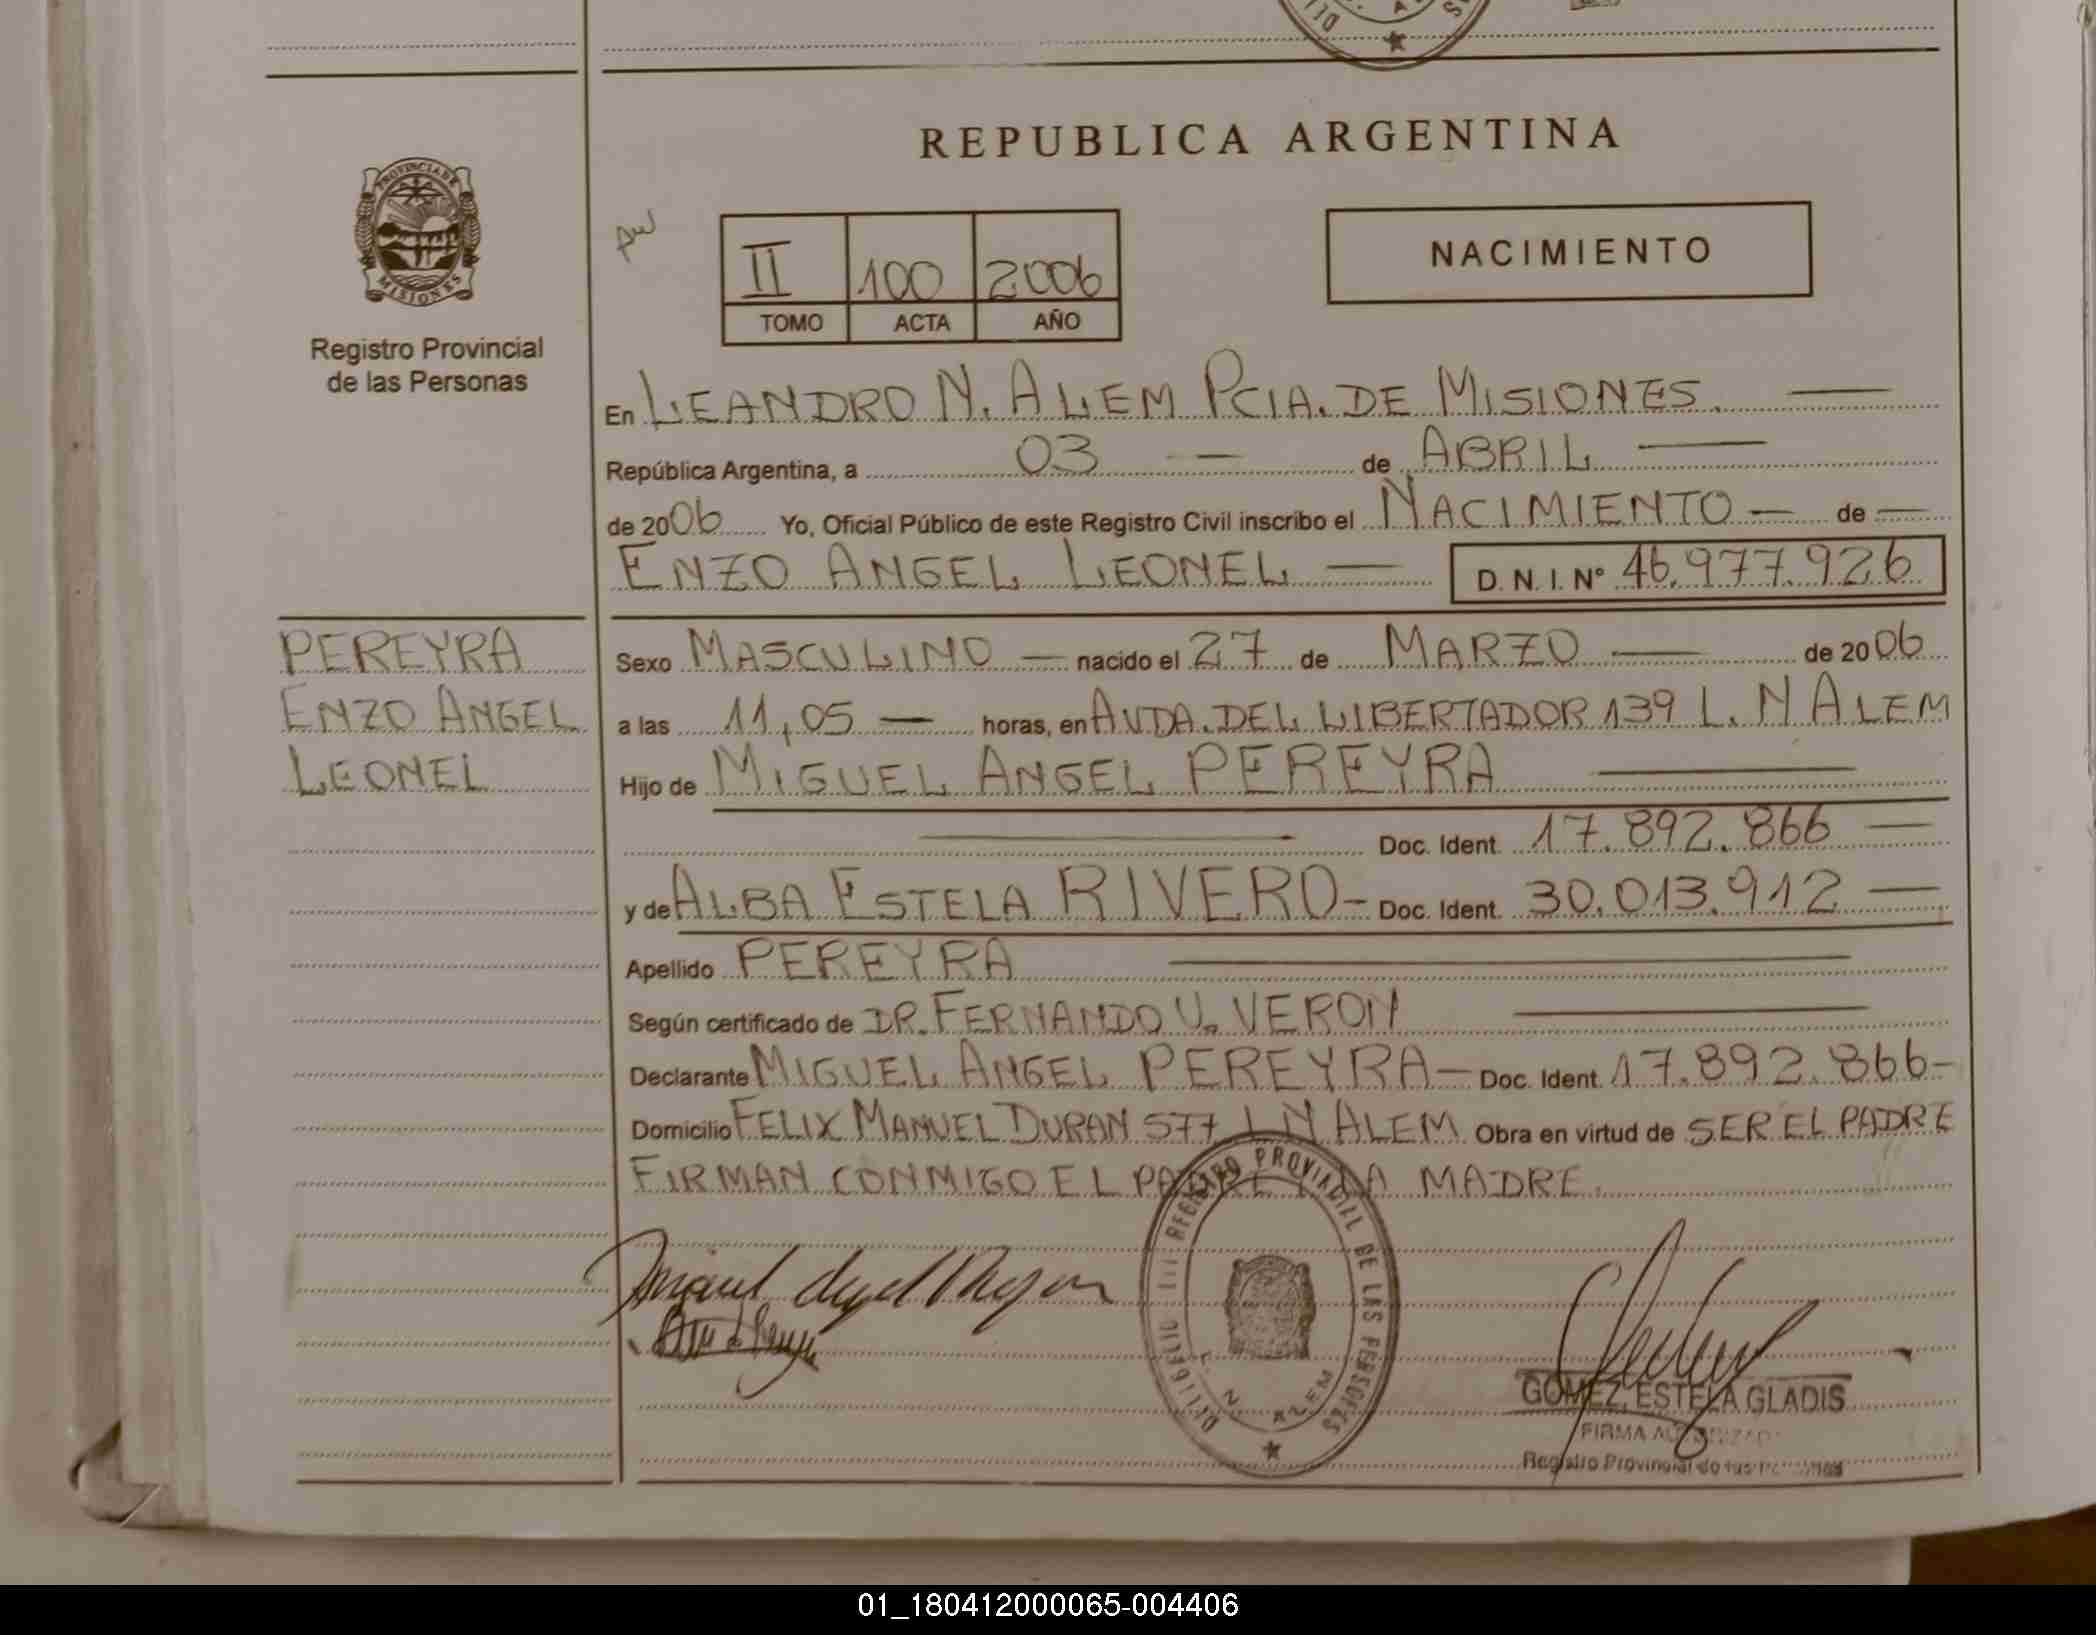 REPUBLICA ARGENTINA
PROVINCIA DE
MISIONES
Registro Provincial
de las Personas
II 100 2006
TOMO ACTA AÑO
NACIMIENTO
En LEANDRO N. ALEM PCIA. DE MISIONES.
República Argentina, a 03 — de ABRIL
de 2006 Yo, Oficial Público de este Registro Civil inscribo el NACIMIENTO — de —
ENZO ANGEL LEONEL — D. N. I. Nº 46.977.926
PEREYRA
ENZO ANGEL
LEONEL
Sexo MASCULINO — nacido el 27 de MARZO — de 2006
a las 11,05 — horas, en AVDA. DEL LIBERTADOR 139 L. N ALEM
Hijo de MIGUEL ANGEL PEREYRA —
— Doc. Ident. 17.892.866 —
y de ALBA ESTELA RIVERO- Doc. Ident. 30.013.912 —
Apellido PEREYRA —
Según certificado de DR. FERNANDO V. VERON —
Declarante MIGUEL ANGEL PEREYRA — Doc. Ident. 17.892.866-
Domicilio FELIX MANUEL DURAN 577 L N ALEM Obra en virtud de SER EL PADRE
FIRMAN CONMIGO EL PADRE Y LA MADRE.
REGISTRO PROVINCIAL DE LAS PERSONAS
L. N. ALEM
GOMEZ, ESTELA GLADIS
FIRMA AUTORIZADA
Registro Provincial de las Personas
01_180412000065-004406